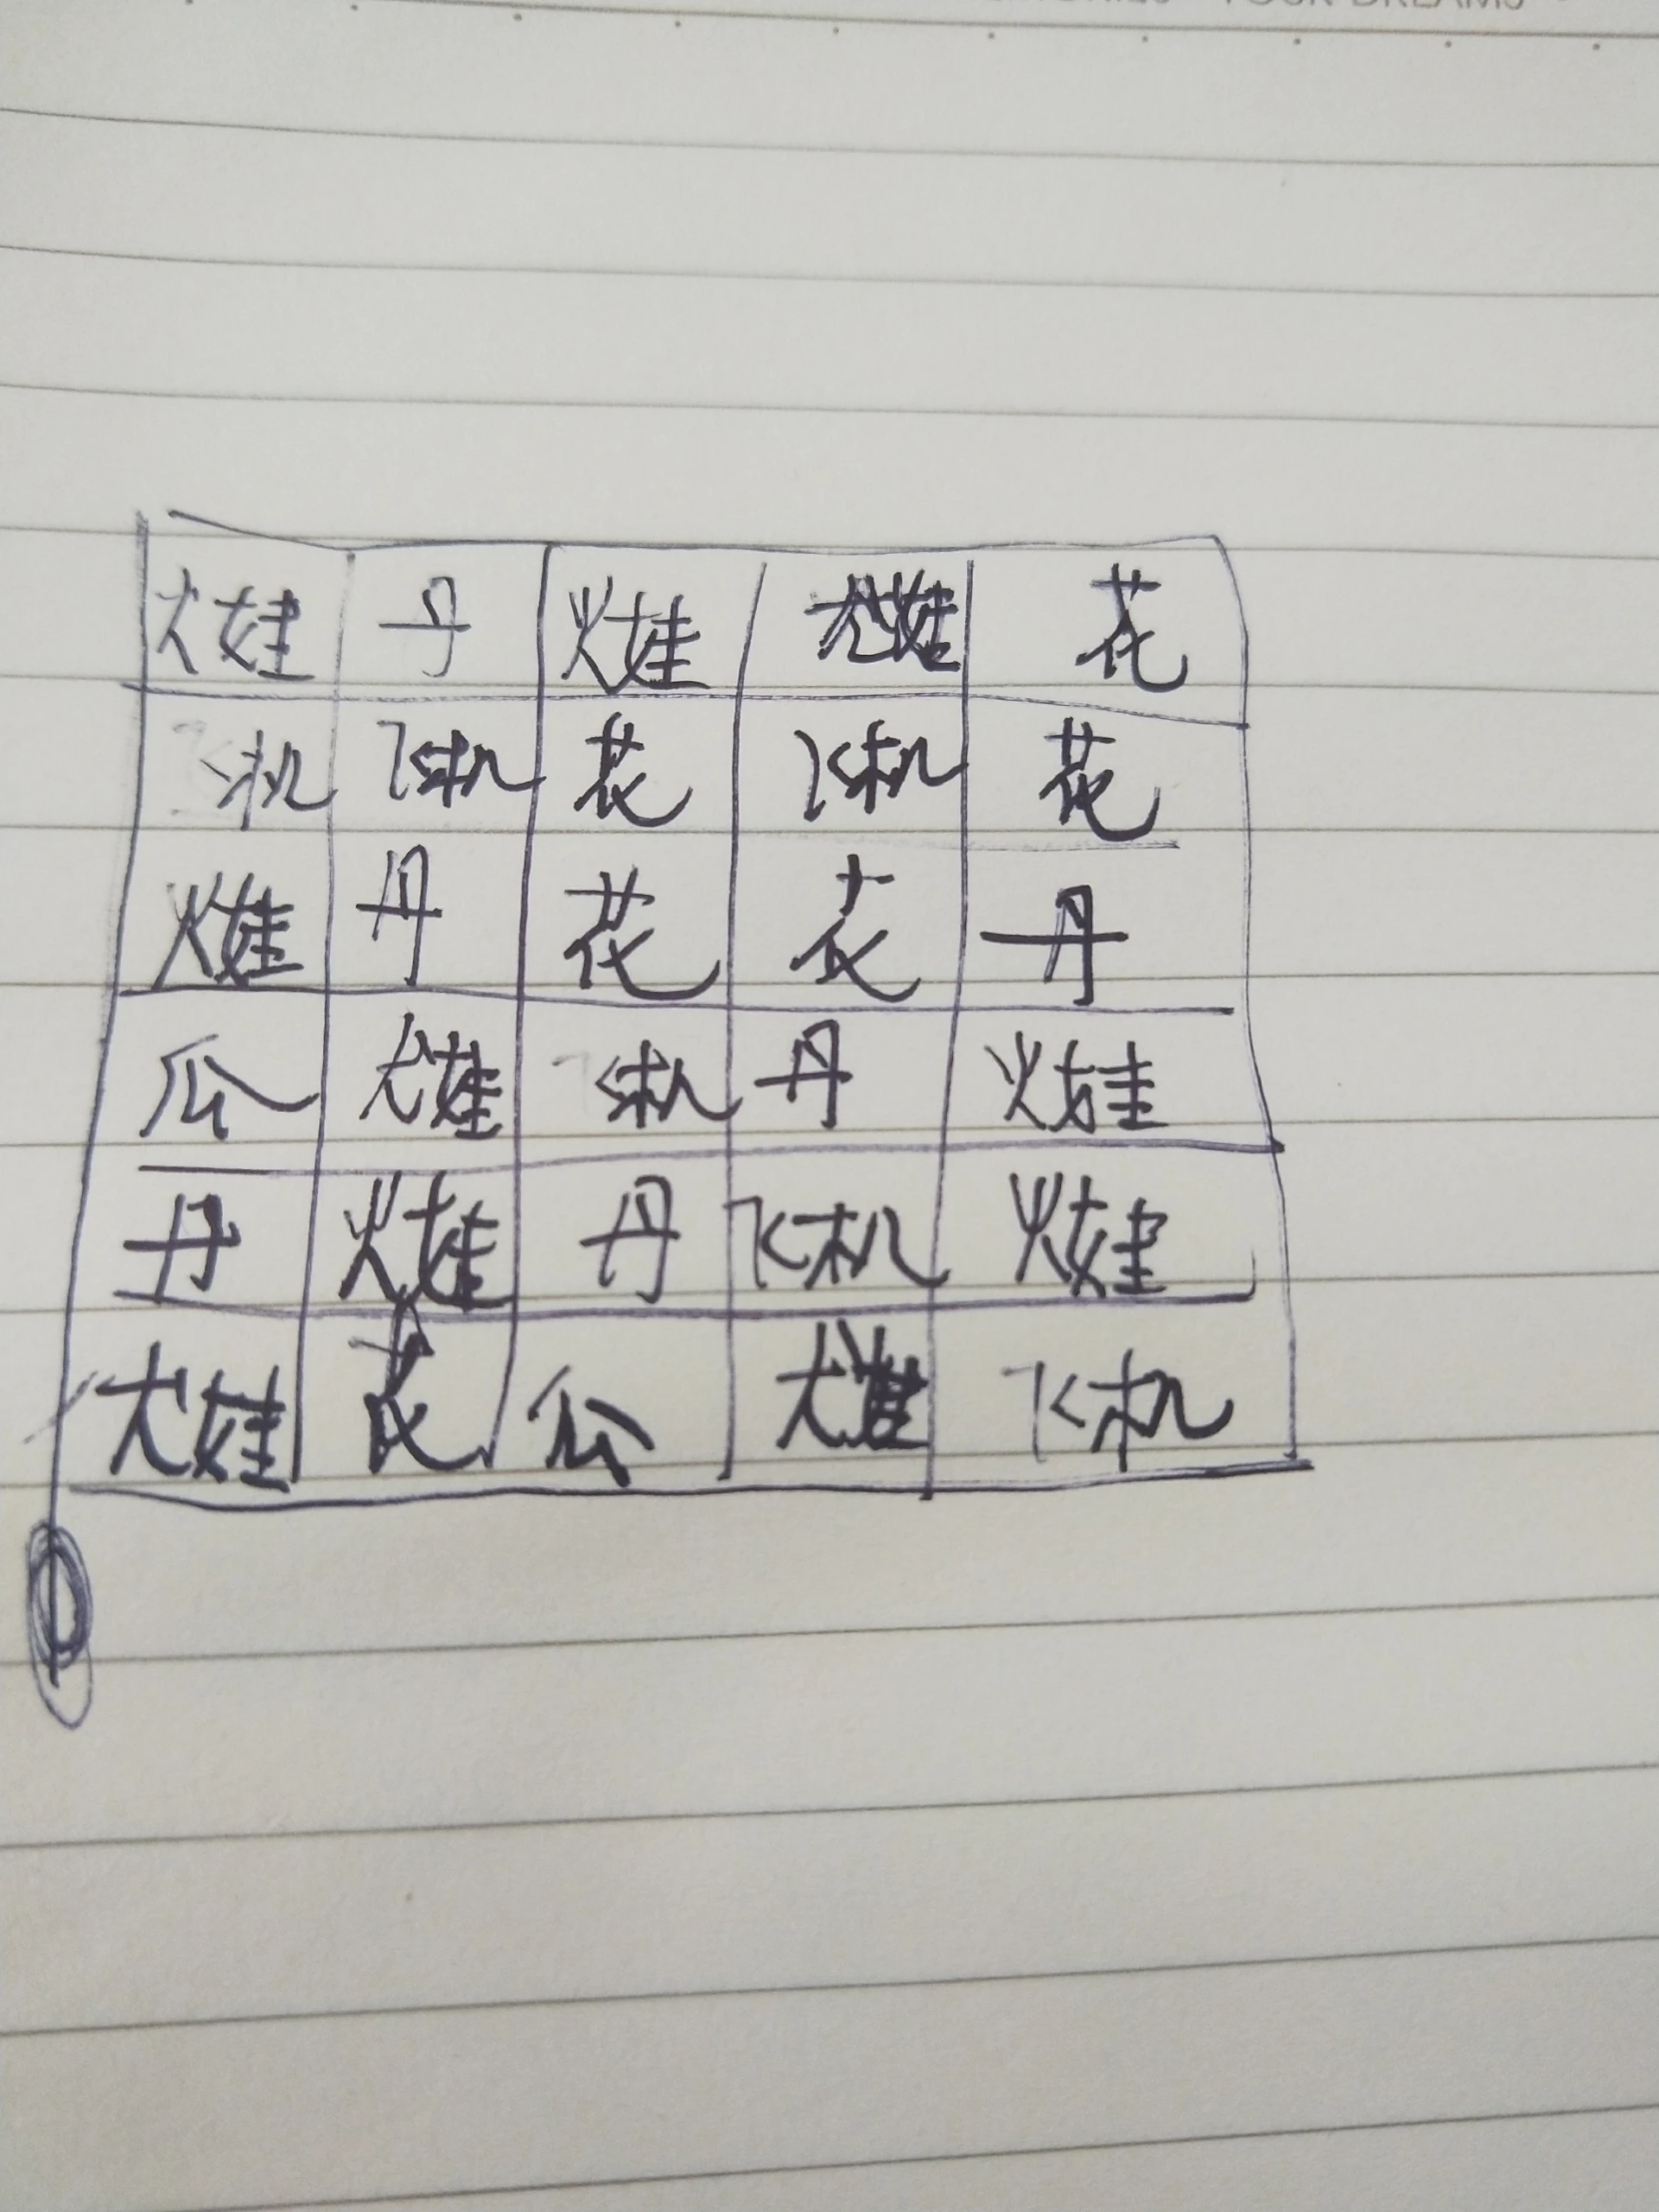 火娃 丹 火娃 火娃 花
飞机 飞机 花 飞机 花
火娃 丹 花 花 丹
瓜 火娃 飞机 丹 火娃
丹 火娃 丹 飞机 火娃
火娃 花 瓜 火娃 飞机